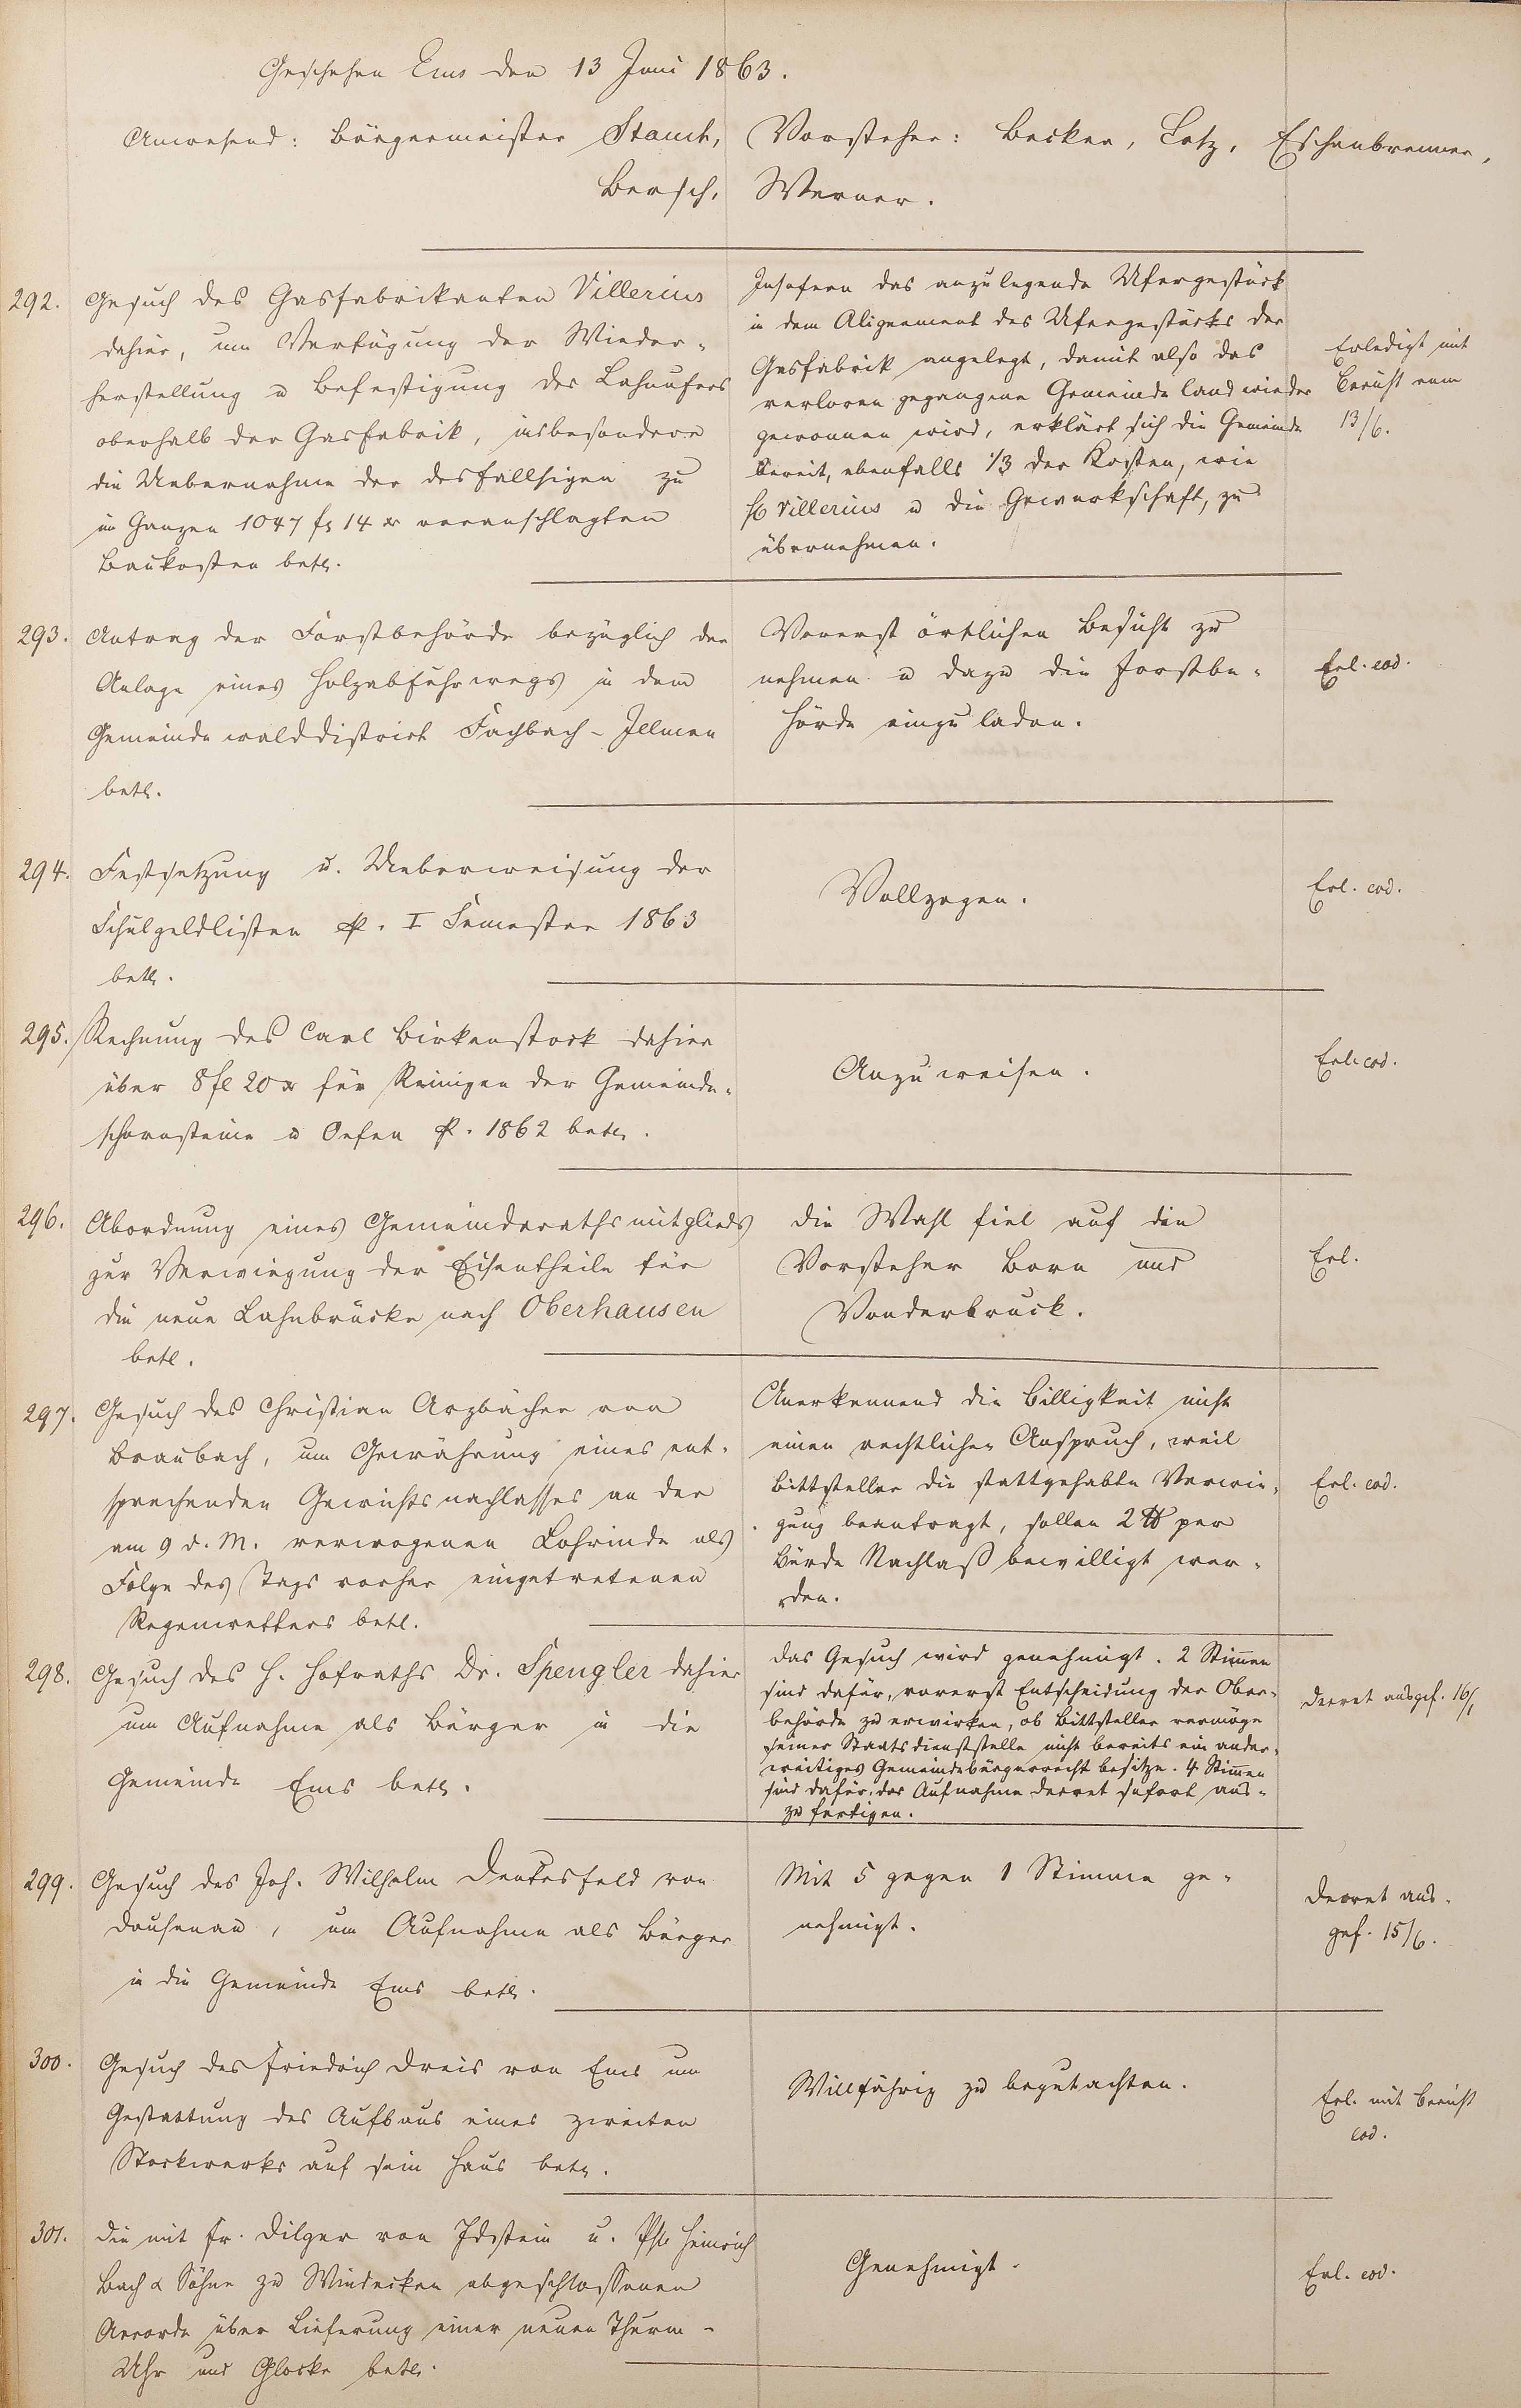 Geschehen Ems den 13 Juni 1863.
Anwesend: Bürgermeister Stauch, Vorsteher: Becker, Lotz, Eschenbrenner,
Bersch, Werner.
292.
Gesuch des Gasfabrikanten Villerius
dahier, um Verfügung der Wieder-
herstellung u Befestigung des Lahnufers
oberhalb der Gasfabrik, insbesondere
die Uebernahme der desfallsigen zu
im Ganzen 1047 fl 14 xr veranschlagten
Baukosten betr.
Insofern das anzulegende Ufergestück
in dem Alignement des Ufergestücks der
Gasfabrik angelegt, damit also das
verloren gegangene Gemeindeland wieder
gewonnen wird, erklärt sich die Gemeinde
bereit, ebenfalls 1/3 der Kosten, wie
H Villerius u die Gewerkschaft, zu
übernehmen.
Erledigt mit
Bericht vom
13/6.
293.
Antrag der Forstbehörde bezüglich der
Anlage eines Holzabfuhrwegs in dem
Gemeindewalddistrict Fachbach-Illmen
betr.
Vorerst örtlichen Besicht zu
nehmen u dazu die Forstbe-
hörde einzuladen.
Erl. eod.
294.
Festsetzung u. Ueberweisung der
Schulgeldlisten p. I Semester 1863
betr.
Vollzogen.
Erl. eod.
295.
Rechnung des Carl Birkenstock dahier
über 8 fl 20 xr für Reinigen der Gemeinde-
schornsteine u Oefen p. 1862 betr.
Anzuweisen.
Erl. eod.
296.
Abordnung eines Gemeinderathsmitglieds
zur Verwiegung der Eisentheile für
die neue Lahnbrücke nach Oberhausen
betr.
Die Wahl fiel auf die
Vorsteher Born und
Vonderbruck.
Erl.
297.
Gesuch des Christian Arzbächer von
Braubach, um Gewährung eines ent-
sprechenden Gewichtsnachlasses an der
am 9 d. M. verwogenen Lohrinde als
Folge des Tags vorher eingetretenen
Regenwetters betr.
Anerkennend die Billigkeit nicht
einen rechtlichen Anspruch, weil
Bittsteller die stattgehabte Verwie-
gung beantragt, sollen 2 ℔ per
Bürde Nachlaß bewilligt wer-
den.
Erl. eod.
298.
Gesuch des H. Hofraths Dr. Spengler dahier
um Aufnahme als Bürger in die
Gemeinde Ems betr.
Das Gesuch wird genehmigt. 2 Stimmen
sind dafür, vorerst Entscheidung der Ober-
behörde zu erwirken, ob Bittsteller vermöge
seiner Staatsdienststelle nicht bereits ein ander-
weitiges Gemeindebürgerrecht besitze. 4 Stimmen
sind dafür, das Aufnahme Decret sofort aus-
zufertigen.
Decret ausgef. 16/
299.
Gesuch des Joh. Wilhelm Denkesfeld von
Dausenau, um Aufnahme als Bürger
in die Gemeinde Ems betr.
Mit 5 gegen 1 Stimme ge-
nehmigt.
Decret aus-
gef. 15/6.
300.
Gesuch des Friedrich Dreis von Ems um
Gestattung des Aufbaus eines zweiten
Stockwerks auf sein Haus betr.
Willfährig zu begutachten.
Erl. mit Bericht
eod.
301.
Die mit Fr. Dilger von Idstein u. Ph. Heinrich
Bach & Söhne zu Windecken abgeschlossenen
Accorde über Lieferung einer neuen Thurm-
Uhr und Glocke betr.
Genehmigt.
Erl. eod.